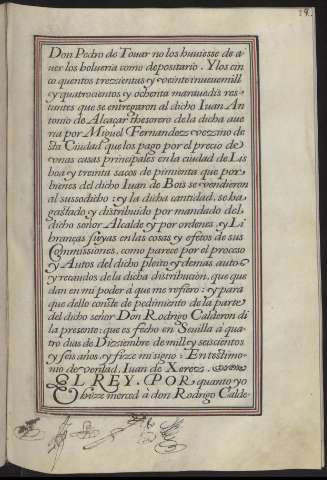 Don Pedro de Touar no los huuiesse de a-
uer los bolueria como depositario. Y los cin
co quentos trezzientas y veinte inueuemill
y quatrocientos y ochenta marauedis res-
tantes que se entregaron al dicho Iuan An
tonio de Alcaçar thesorero de la dicha aue
ria por Miguel Fernandez vezzino de
sta Ciudad que los pago por el precio de
vnas casas principales en la ciudad de Lis
boa y treinta sacos de pimienta que por
bienes del dicho Iuan de Bois se vendieron
al sussodicho : y la dicha cantidad, se ha
gastado y distribuido por mandado del
dicho señor Alcalde y por ordenes y Li
branças suyas en las cosas y efetos de sus
Commissiones, como parece por el proceso
y Autos del dicho pleito y demas autos
y recaudos de la dicha distribución, que que
dan en mi poder à que me refiero : y para
que dello conste de pedimiento de la parte
del dicho señor Don Rodrigo Calderon di
la presente : que es fecho en Seuilla à qua
tro dias de Dizziembre de mill y seiscientos
y seis años, y fizze mi signo : En testimo
nio de verdad, Iuan de Xerez.
EL REY. POR quanto yo
hizze merced à don Rodrigo Calde-